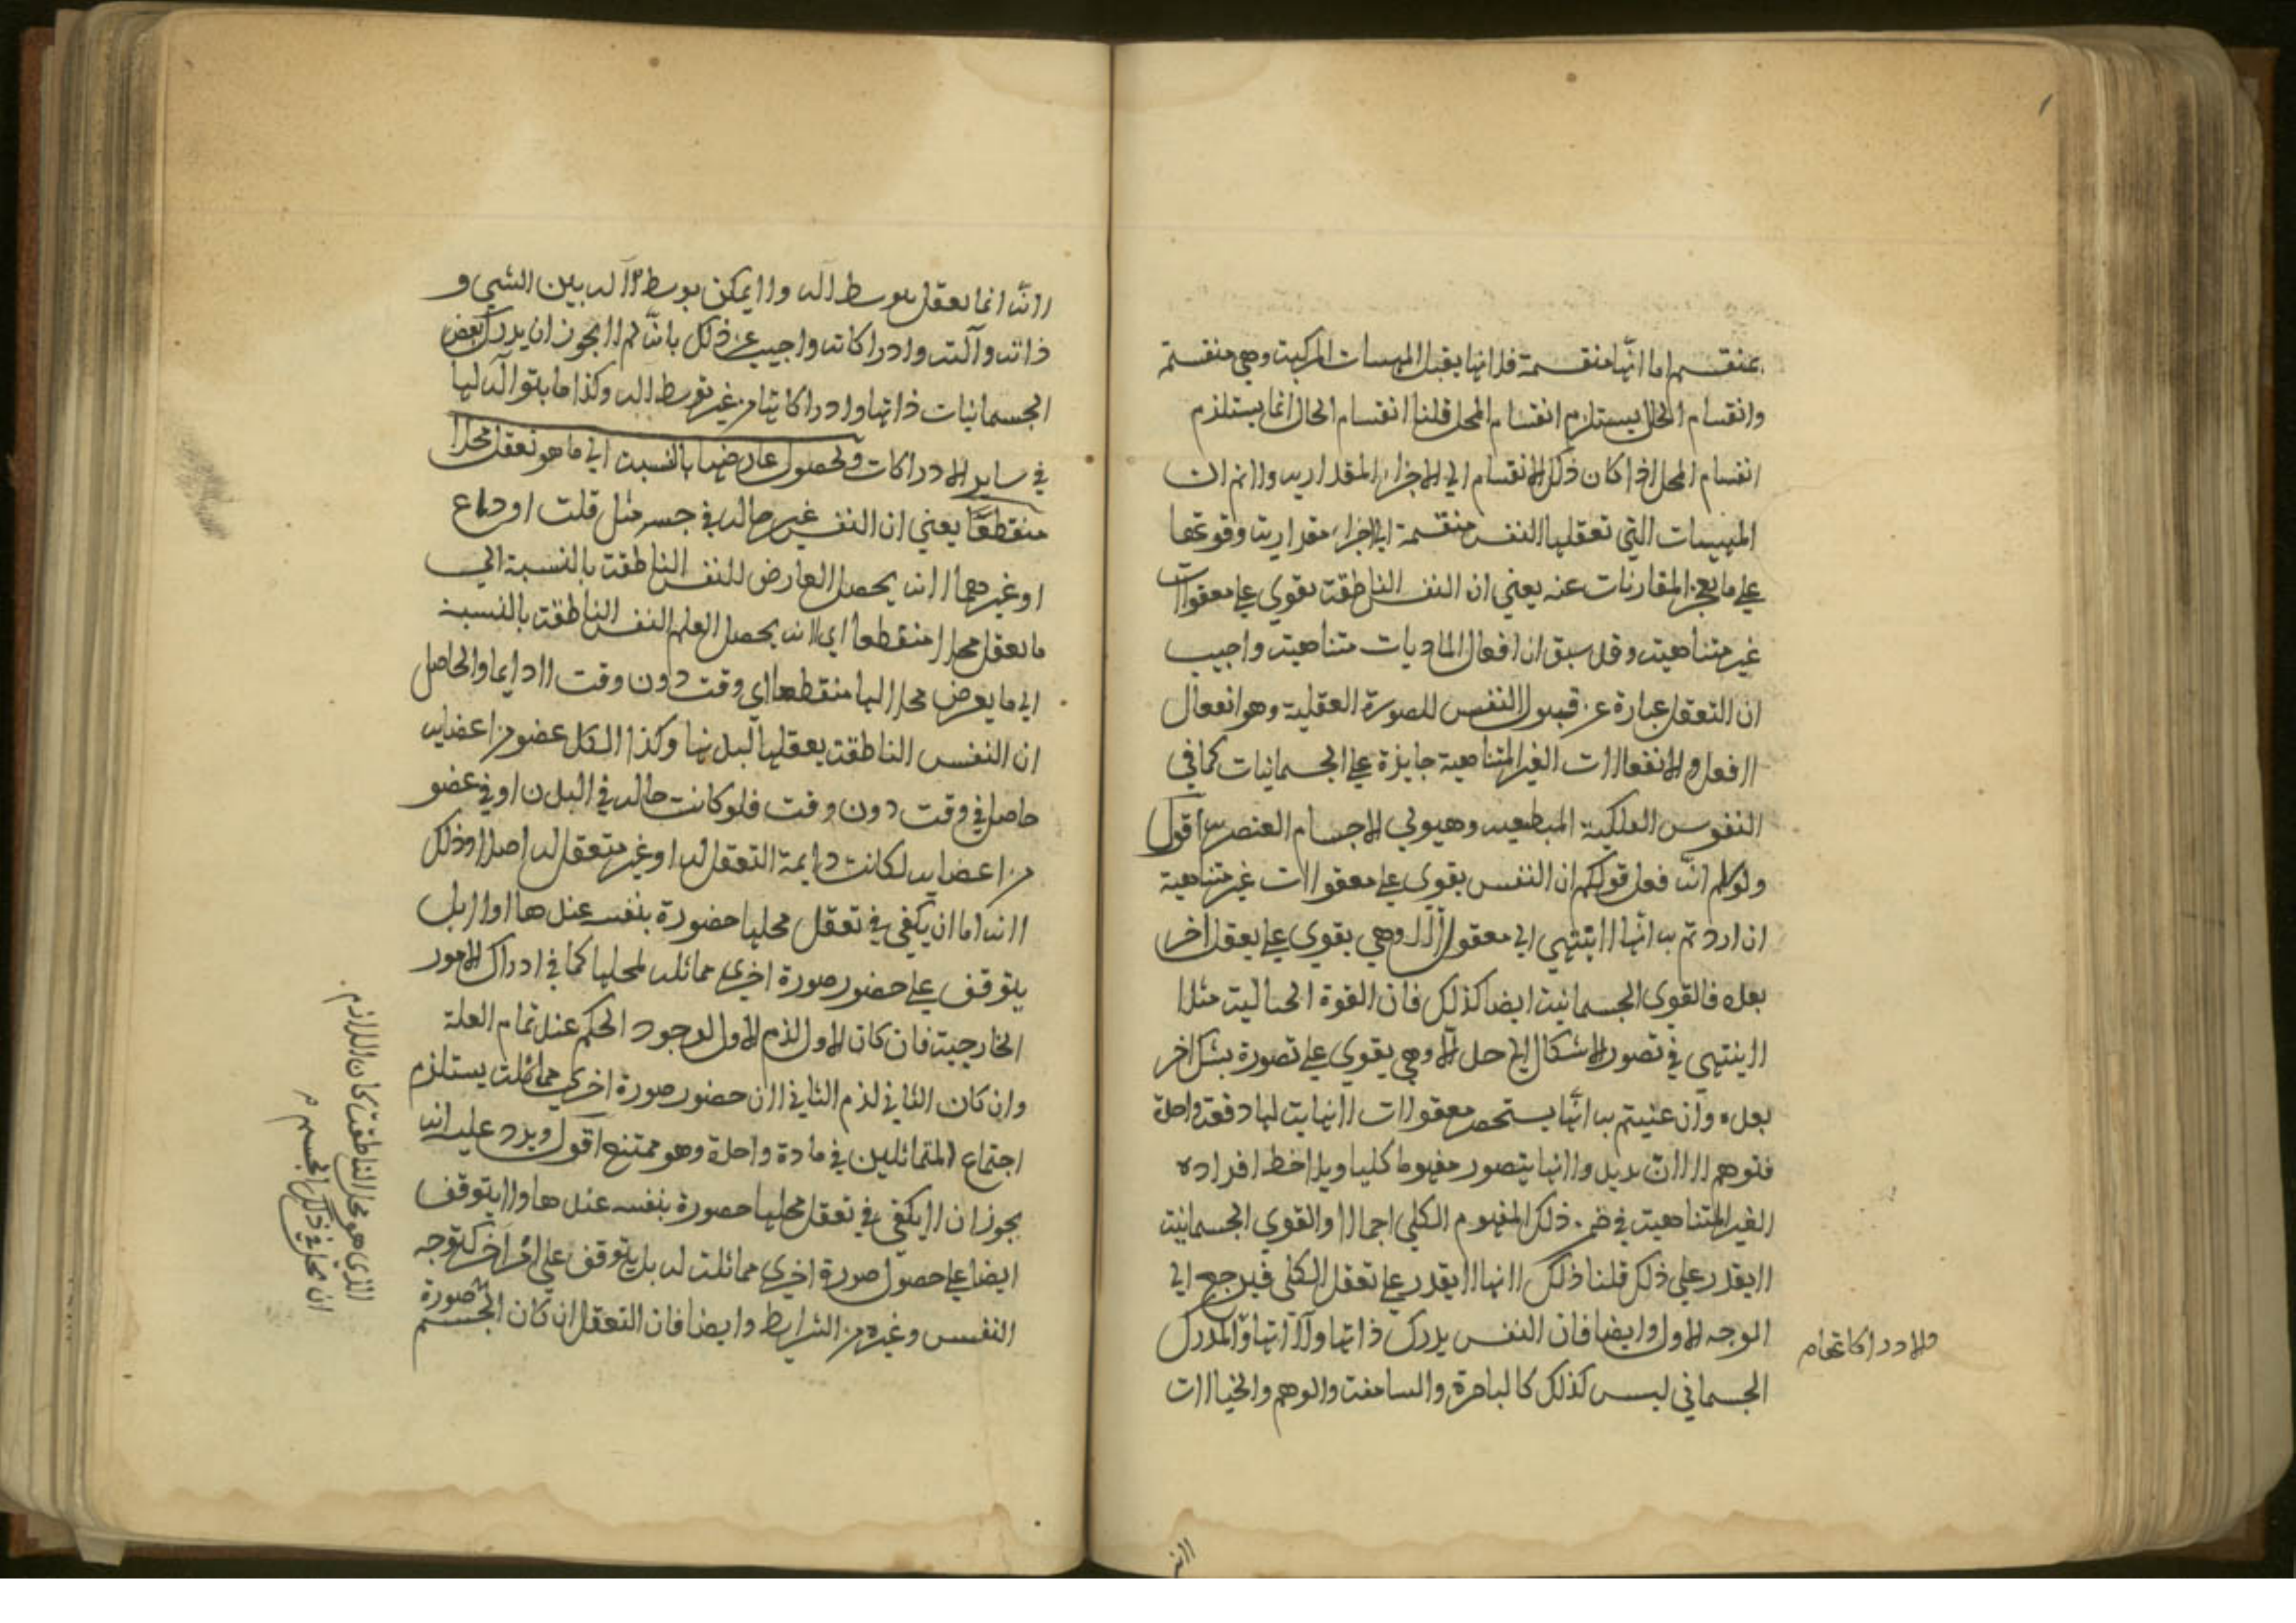 بمنقسم اما انها منقسمة فلانها يقبل المهيات المركبة وهي منقسمة
وانقسام الحال يستلزم انقسام المحل قلنا انقسام الحال انما يستلزم
انقسام المحل اذا كان ذلك الانقسام الى الاجزاء المقدارية ولانم ان
المهيات التي تعقلها النفس منقسمة الى اجزاء مقدارية وقوتها
على ما يعجز المقارنات عنه يعني ان النفس الناطقة يقوي على معقولات
غير متناهية وقد سبق ان افعال الماديات متناهية واجيب
ان التعقل عبارة عن قبول النفس للصورة العقلية وهو انفعال
لا فعل والانفعالات الغير المتناهية جايزة على الجسمانيات كما في
النفوس الفلكية المنطبعة وهيولى الاجسام العنصرية اقول
ولو سلم انه فعل قولكم ان النفس يقوي على معقولات غير متناهية
ان اردتم به انها لا تنتهي الى معقول الا وهي يقوي على يعقل اخر
بعده فالقوى الجسمانية ايضا كذلك فان القوة الخيالية مثلا
لا ينتهي في تصور الاشكال الى حد الا وهي يقوي على تصورة بشكل اخر
بعده وان عنيتم به انها يستحضر معقولات لا نهاية لها دفعة واحدة
فتوهم لا لان يديل ولانها يتصور مفهوما كليا ويلاحظ افراده
الغير المتناهية في ضمن ذلك المفهوم الكلي اجمالا والقوي الجسمانية
لا يقدر على ذلك قلنا ذلك لانها لا يقدر على تعقل الكلى فيرجع الى
الوجه الاول وايضا فان النفس يدرك ذاتها وآلاتها والمدرك
والادراكاتها م
الجسماني ليس كذلك كالباصرة والسامعة والوهم والخيالات
لانه
لانه انما يعقل بتوسط آله ولا يمكن بوسط الآله بين الشيء و
ذاته وآلته وادراكاته واجيب عن ذلك بانه لم لا يجوز ان يدرك بعض
الجسمانيات ذاتها وادراكاتها من غير توسط اله وكذا ما يتوالد لها
في ساير الادراكات ولحصول عارضها بالنسبة الى ما هو تعقل محلا
منقطعا يعني ان النفس غير حاله في جسم مثل قلب او دماغ
او غيرهما لانه يحصل العارض للنفس الناطقة بالنسبة الى
ما يعقل محلا منقطعا اي لانه يحصل العلم للنفس الناطقة بالنسبة
الى ما يعرض محلا لها منقطعا اي وقت دون وقت لا دايما والحاصل
ان النفس الناطقة يعقلها لبدنها وكذا لكل عضو من اعضايه
حاصل في وقت دون وقت فلو كانت حاله في البدن او في عضو
من اعضايه لكانت دايمة التعقل له او غير متعقل له اصلا وذلك
لانه اما ان يكفي في تعقل محلها حضورة بنفسه عندها او لا بل
يتوقف على حضور صورة اخرى مماثله لمحلها كما في ادراك الامور
الخارجية فان كان الاول لزم الاول لوجود الحكم عند تمام العلة
وان كان الثاني لزم الثاني لان حضور صورة اخرى مماثلة يستلزم
اجتماع المتماثلين في مادة واحدة وهو ممتنع اقول ويرد عليه انه
يجوز ان لا يكفي في تعقل محلها حصورة بنفسه عندها ولا يتوقف
ايضا على حصول صورة اخرى مماثلة له بل يتوقف على امر آخر كتوجه
النفس وغيره من الشرايط وايضا فان التعقل ان كان الجسم صورة
الذي هو محل الناطقة كان اللازم
ان محل في ذلك الجسم م